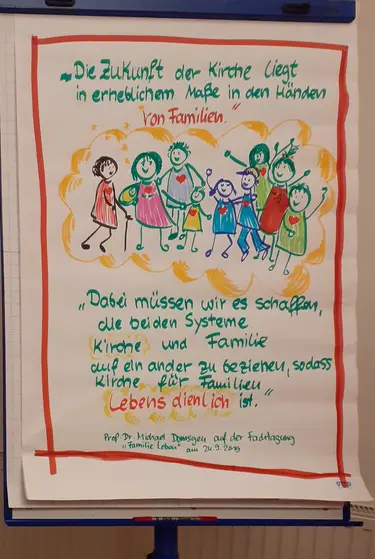 „Die Zukunft der Kirche liegt
in erheblichem Maße in den Händen
von Familien."
„Dabei müssen wir es schaffen,
die beiden Systeme
Kirche und Familie
auf ein ander zu beziehen, sodass
Kirche für Familien
Lebens dienlich ist."
Prof. Dr. Michael Domsgen auf der Fachtagung
„Familie Leben" am 24.9.2019